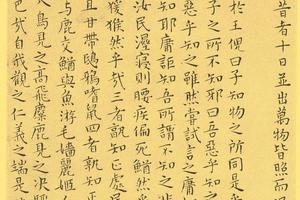 昔者十日並出萬物皆照而況
於王倪曰子知物之所同是乎
子之所不知邪曰吾惡乎知
惡乎知之雖然嘗試言之庸
知耶庸詎知吾所謂不知之
汝民溼寢則腰疾偏死鰌然
猨猴然乎哉三者孰知正處民
且甘帶鴟鴉嗜鼠四者孰知正
與鹿交鰌與魚游毛嬙麗姬人
入鳥見之高飛麋鹿見之決驟
色哉自我觀之仁義之端是